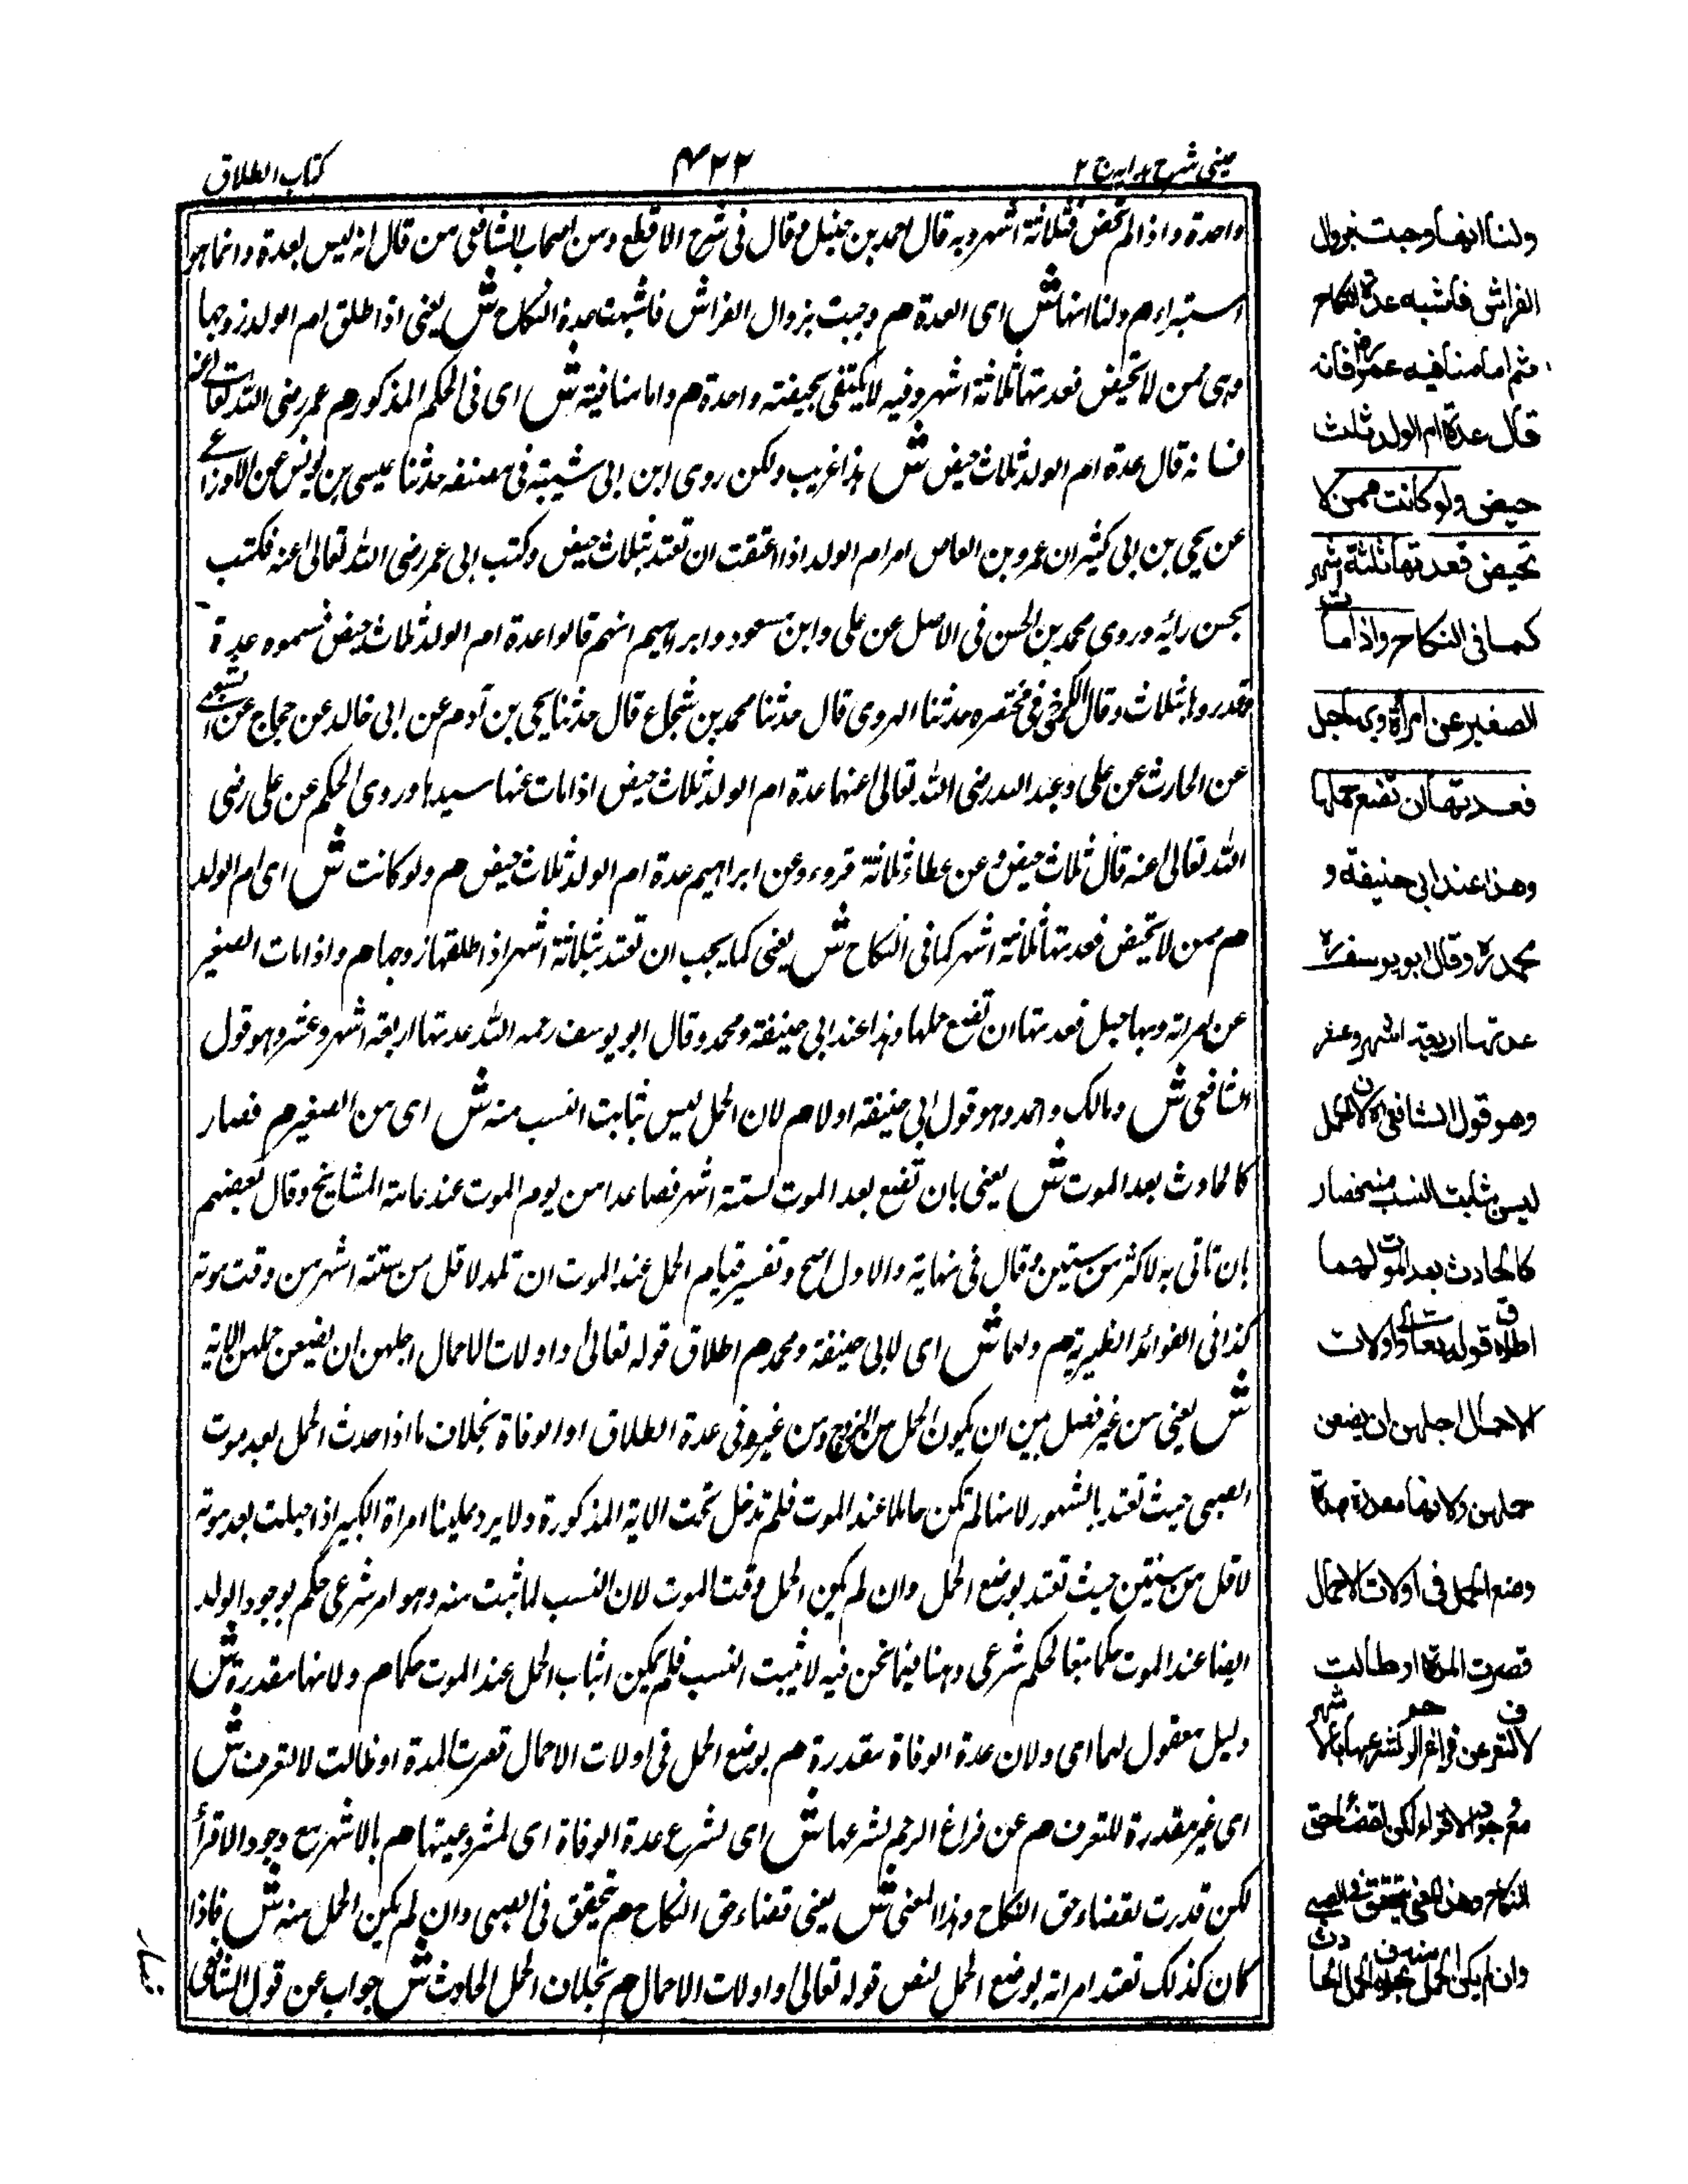 عینی شرح هدایہ ج ۲
۴۲۲
کتاب الطلاق
واحدة واذا لم تحض فثلاثة اشهر وبه قال احمد بن حنبل وقال فی شرح الاقطع ومن اصحاب الشافعی من قال انه لیس بعدة وانما هو
استبراء م ولنا انها ش ای العدة م وجبت بزوال الفراش فاشبهت عدة النکاح ش یعنی اذا طلق ام الولد زوجها
وهی ممن لا تحیض فعدتها ثلاثة اشهر وفیه لا یکتفی بحیضة واحدة م وامامنا فیه ش ای فی الحکم المذکور م عمر رضی الله تعالی عنه
فانه قال عدة ام الولد ثلاث حیض ش هذا غریب ولکن روی ابن ابی شیبة فی مصنفه حدثنا عیسی بن یونس عن الاوزاعی
عن یحیی بن ابی کثیر ان عمرو بن العاص امر ام الولد اذا اعتقت ان تعتد بثلاث حیض وکتب ابی عمر رضی الله تعالی عنه فکتب
بحسن رائه وروی محمد بن الحسن فی الاصل عن علی وابن مسعود وابراهیم انهم قالوا عدة ام الولد ثلاث حیض فسموه عدة
وقدروها بثلاث وقال الکرخی فی مختصره حدثنا الهروی قال حدثنا محمد بن شجاع قال حدثنا یحیی بن آدم عن ابی خالد عن حجاج عن الشعبی
عن الحارث عن علی وعبد الله رضی الله تعالی عنهما عدة ام الولد ثلاث حیض اذا مات عنها سیدها وروی الحکم عن علی رضی
الله تعالی عنه قال ثلاث حیض وعن عطاء ثلاثة قروء وعن ابراهیم عدة ام الولد ثلاث حیض م ولو کانت ش ای ام الولد
م ممن لا تحیض فعدتها ثلاثة اشهر کما فی النکاح ش یعنی کما یجب ان تعتد بثلاثة اشهر اذا طلقها زوجها م واذا مات الصغیر
عن امرأته وبها حبل فعدتها ان تضع حملها وهذا عند ابی حنیفة ومحمد وقال ابو یوسف رحمه الله عدتها اربعة اشهر وعشر وهو قول
الشافعی ش ومالک واحمد وهو قول ابی حنیفة اولا م لان الحمل لیس بثابت النسب منه ش ای من الصغیر م فصار
کالحادث بعد الموت ش یعنی بان تضع بعد الموت لستة اشهر فصاعدا من یوم الموت عند عامة المشایخ وقال بعضهم
بان تاتی به لاکثر من سنتین وقال فی نهایة والاول اصح وتفسیر قیام الحمل عند الموت ان تلد لاقل من ستة اشهر من وقت موته
کذا فی الفوائد الظهیریة م ولهما ش ای لابی حنیفة ومحمد م اطلاق قوله تعالی واولات الاحمال اجلهن ان یضعن حملهن الآیة
ش یعنی من غیر فصل بین ان یکون الحمل من الزوج ومن غیره فی عدة الطلاق او الوفاة بخلاف ما اذا حدث الحمل بعد موت
الصبی حیث تعتد بالشهور لانها لم تکن حاملا عند الموت فلم تدخل تحت الایة المذکورة ولا یرد علینا امراة الکبیر اذا حبلت بعد موته
لاقل من سنتین حیث تعتد بوضع الحمل وان لم یکن الحمل وقت الموت لان النسب لما ثبت منه وهو امر شرعی حکم بوجود الولد
ایضا عند الموت حکما تبعا لحکم شرعی وهنا فیما نحن فیه لا یثبت النسب فلم یکن اثبات الحمل عند الموت حکما م ولانها مقدرة ش
دلیل معقول لهما ای ولان عدة الوفاة مقدرة م بوضع الحمل فی اولات الاحمال قصرت المدة او طالت لا للتعرف ش
ای غیر مقدرة للتعرف م عن فراغ الرحم لشرعها ش ای لشرع عدة الوفاة ای لمشروعیتها م بالاشهر مع وجود الاقرأ
لکن قدرت لقضاء حق النکاح وهذا المعنی ش یعنی قضاء حق النکاح م تحقق فی الصبی وان لم یکن الحمل منه ش فاذا
کان کذلک تعتد امرأته بوضع الحمل لنص قوله تعالی واولات الاحمال م بخلاف الحمل الحادث ش جواب عن قول الشافعی
ولنا انها وجبت بزوال
الفراش فاشبه عدة النکاح
ثم امامنا فیه عمر رض فانه
قال عدة ام الولد ثلث
حیض ولو کانت ممن لا
تحیض فعدتها ثلثة اشهر
کما فی النکاح واذا مات
الصغیر عن امرأة وبها حبل
فعدتها ان تضع حملها
وهذا عند ابی حنیفة و
محمد ره وقال ابو یوسف ره
عدتها اربعة اشهر وعشر
وهو قول الشافعی لان الحمل
لیس بثابت النسب منه فصار
کالحادث بعد الموت ولهما
اطلاق قوله تعالی واولات
الاحمال اجلهن ان یضعن
حملهن ولانها مقدرة بمدة
وضع الحمل فی اولات الاحمال
قصرت المدة او طالت
لا للتعرف عن فراغ الرحم لشرعها بالاشهر
مع وجود الاقراء لکن لقضاء حق
النکاح وهذا المعنی یتحقق فی الصبی
وان لم یکن الحمل منه بخلاف الحمل الحادث